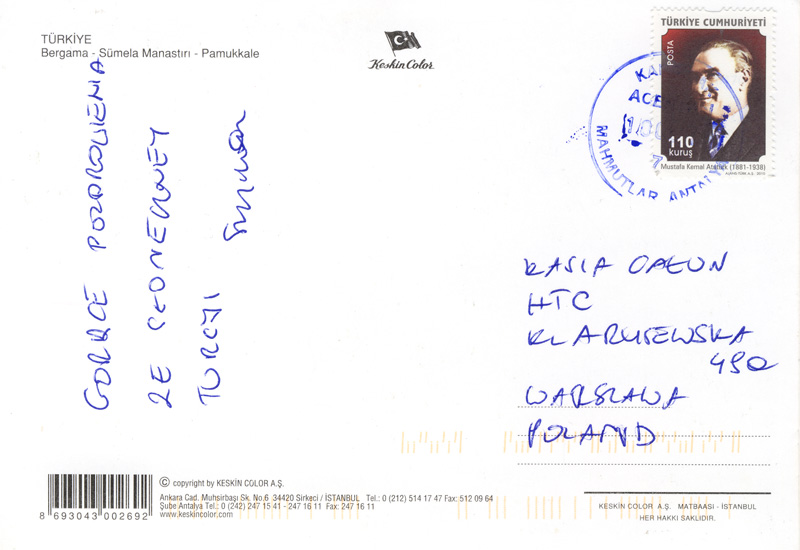 TÜRKİYE
Bergama - Sümela Manastırı - Pamukkale
Keskin Color
TÜRKİYE CUMHURİYETİ
POSTA
110
kuruş
Mustafa Kemal Atatürk (1881-1938)
MAHMUTLAR ANTALYA
GORĄCE POZDROWIENIA
ZE SŁONECZNEJ
TURCJI
KASIA
HTC
WARSZAWA
POLAND
© copyright by KESKİN COLOR A.Ş.
Ankara Cad. Muhsirbaşı Sk. No.6 34420 Sirkeci / İSTANBUL Tel.: 0 (212) 514 17 47 Fax: 512 09 64
Şube:Antalya Tel.: 0 (242) 247 15 41 - 247 16 11 Fax: 247 16 11
www.keskincolor.com
8 693043 002692
KESKİN COLOR A.Ş. MATBAASI - İSTANBUL
HER HAKKI SAKLIDIR.